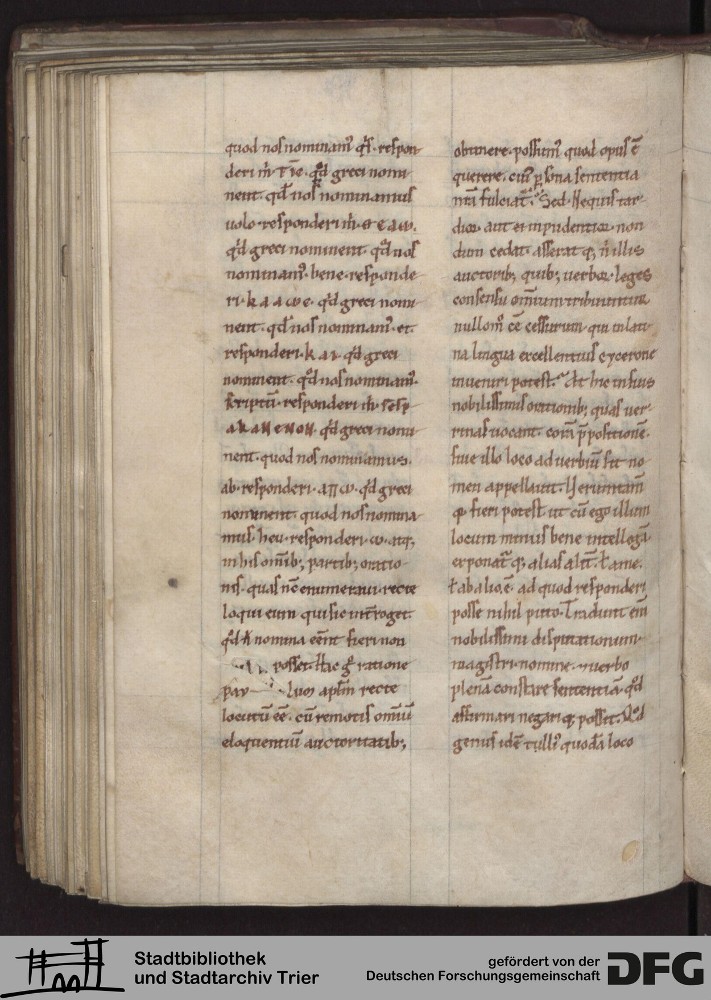 quod nos nominam᾽ q̅s. respon
deri m̅ τ ι̅ε. qͦd greci nomi
nent. qđ nos nominamus
uolo. responderi m̅. θ ε λ ω.
qđ greci nominent. qđ nos
nominam᾽. bene. responde
ri. κ α λ ω c. qđ greci nomi
nent. qđ nos nominam᾽. et.
responderi. κ α ι. qđ greci
nominent. qͦd nos nominam᾽.
scriptũ. responderi m̅.
qđ greci nomi
nent. quod nos nominamus.
ab. responderi. α π ω. qđ greci
nominent. quod nos nomina
mus. heu. responderi. ω. atq;
in his om̅ib; partib; oratio
nis. quas nc̅ enumeraui. recte
loqui eum qui sic int̅roget.
qđ si nomina ee̅nt fieri non
posset. Hac g̊ ratione
pau lum ap̅lm recte
locutũ ee̅. cũ remotis om̅iũ
eloquentiũ auctoritatib;
obtinere. possim᾽ quod opus ē
querere. cui᾽ ꝑsona sententia
nr̅a fulciat᾽. Sed. Ne quis tar
dior. aut et inpudentior. non
dum cedat. asserat q; n̅ illis
auctorib; quib; uerbor leges
consensu om̅ium tribuuntur
nullom᾽ ce̅ cessurum. qui in lati
na lingua excellentius cycerone
inueniri potest. At hic in suis
nobilissimis orationib; quas uer
rinas uocant. corã p̅positione.
siue illo loco aduerbiũ sit no
men appellauit. Herumtam̅
qꝫ fieri potest ut cũ ego illum
locum minus bene intellegã
exponat᾽ q; alias alit̅. ł a me.
ł ab alio. ē. ad quod responderi
posse nihil puto. Tradunt eni̅
nobilissimi disputationum.
magistri. nomine. uerbo
plenã constare sententiã. qđ
affirmari negari q; possit. Quod
genus idē tulli᾽ quodã loco
Stadtbibliothek
und Stadtarchiv Trier
gefördert von der
Deutschen Forschungsgemeinschaft
DFG